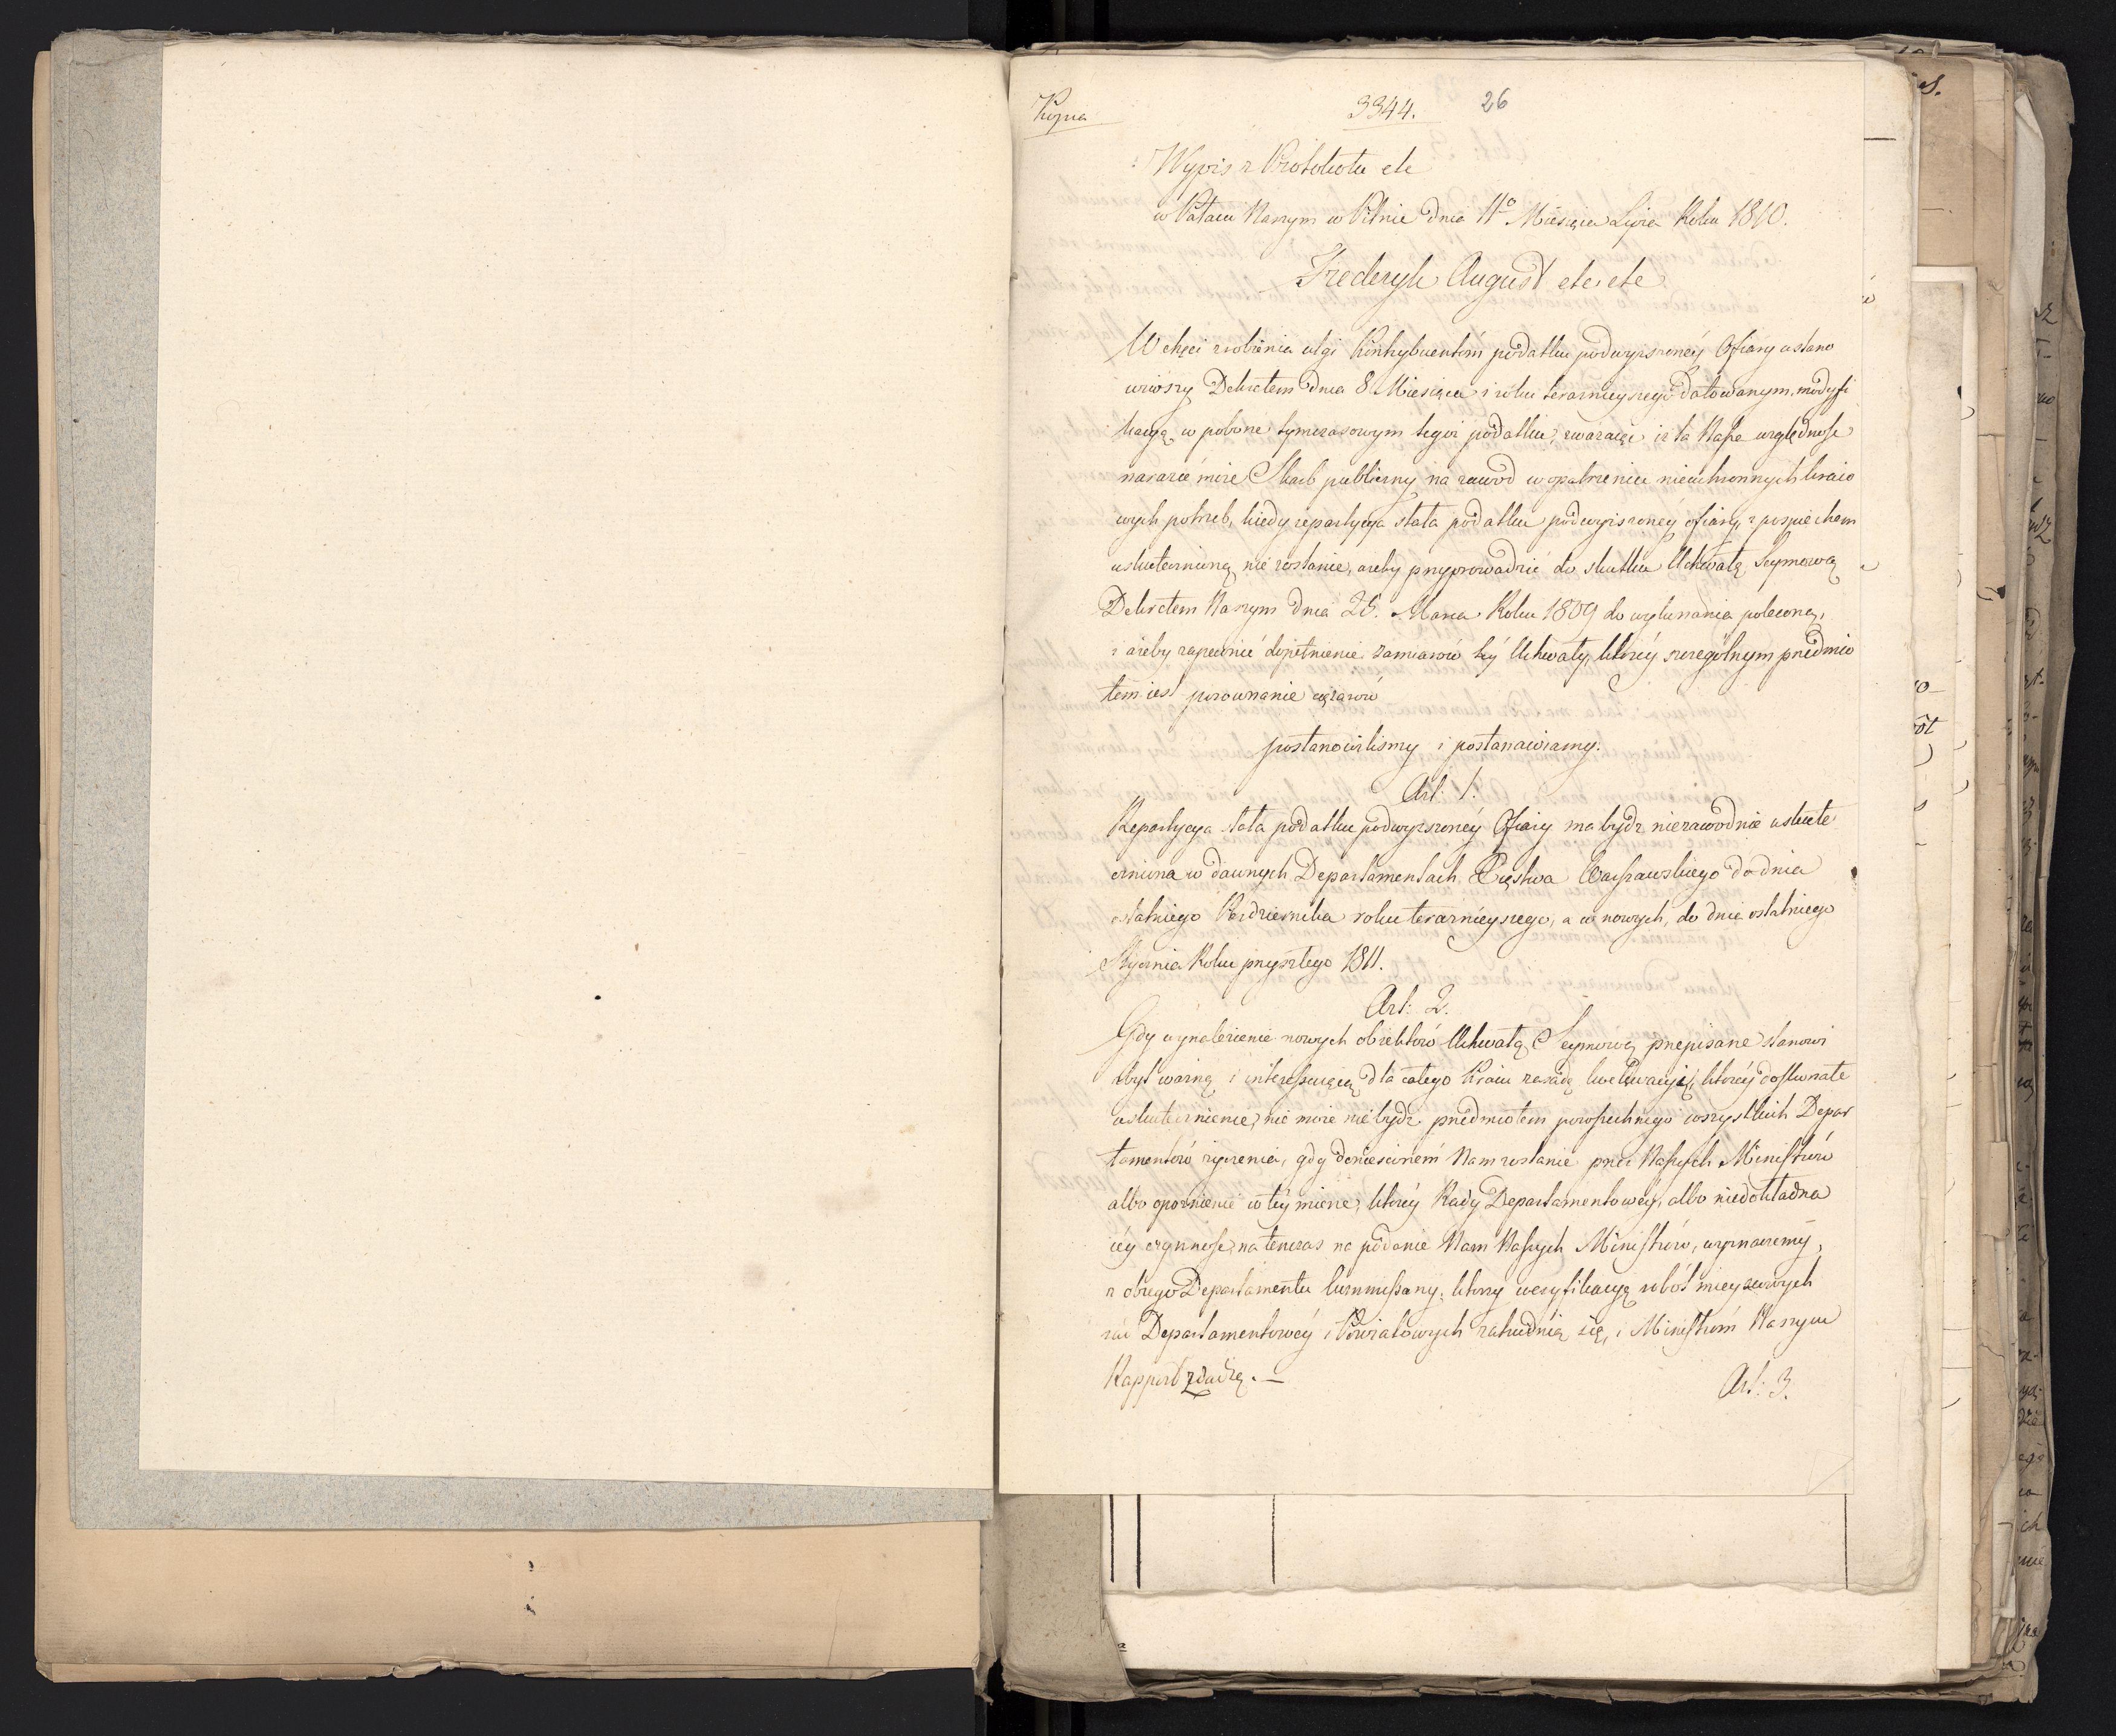 Kopia
3344. 26
Wypis z Protokołu etc
w Pałacu Naszym w Pilnie dnia 11º Miesiąca Lipca Roku 1810.
Frederyk August etc. etc
W chęci zrobienia ulgi Kontrybuentom podatku podwyższonéy Ofiary ustano
wiwszy Dekretem dnia 8 Miesiąca i roku teraznieyszego datowanym, modyfi
kacyą w poborze tymczasowym tegoż podatku, zważaiąc iż ta Nasza względność
narazić może Skarb publiczny na zawód w opatrzeniu nieuchronnych kraio
wych potrzeb, kiedy repartycya stała podatku podwyższonéy ofiary, z pospiechem
uskutecznioną nie zostanie, ażeby przyprowadzić do skutku Uchwałę Seymową
Dekretem Naszym dnia 25. Marca Roku 1809 do wykonania poleconą,
i ażeby zapewnić dopełnienie zamiarów téy Uchwały, któréy szczególnym przedmio
tem iest porównanie ciężarów
postanowiliśmy i postanawiamy.
Art: 1.
Repartycya stała podatku podwyższonéy Ofiary ma bydź niezawodnie uskute
czniona w dawnych Departamentach Xięstwa Warszawskiego do dnia
ostatniego Października roku teraznieyszego, a w nowych, do dnia ostatniego
Stycznia Roku przyszłego 1811.
Art: 2.
Gdy wynalezienie nowych obiektów Uchwałą Seymową przepisane stanowi
zbyt ważną i interessuiącą dla całego Kraiu zasadę kwekwacyi, któréy doskonałe
uskutecznienie, nie może nie bydź przedmiotem powszechnego wszystkich Depar
tamentów życzenia, gdy doniesioném Nam zostanie przez Naszych Ministrów
albo opoznienie w téy mierze, któréy Rady Departamentowéy, albo niedokładna
iéy czynność, na tenczas na podanie Nam Naszych Ministrów, wyznaczemy,
z obcego Departamentu kommissarzy, którzy weryfikacyą robót mieyscowych
rad Departamentowéy i Powiatowych zatrudnią się, i Ministrom Naszym
Rapport zdadzą. —
Art: 3.